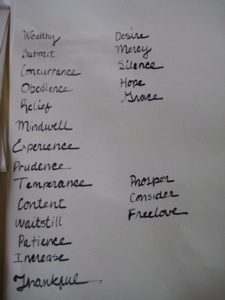 Wealthy
Submit
Concurrance
Obedience
Relief
Mindwell
Experience
Prudence
Temperance
Content
Waitstill
Patience
Increase
Thankful
Desire
Mercy
Silence
Hope
Grace
Prosper
Consider
Freelove